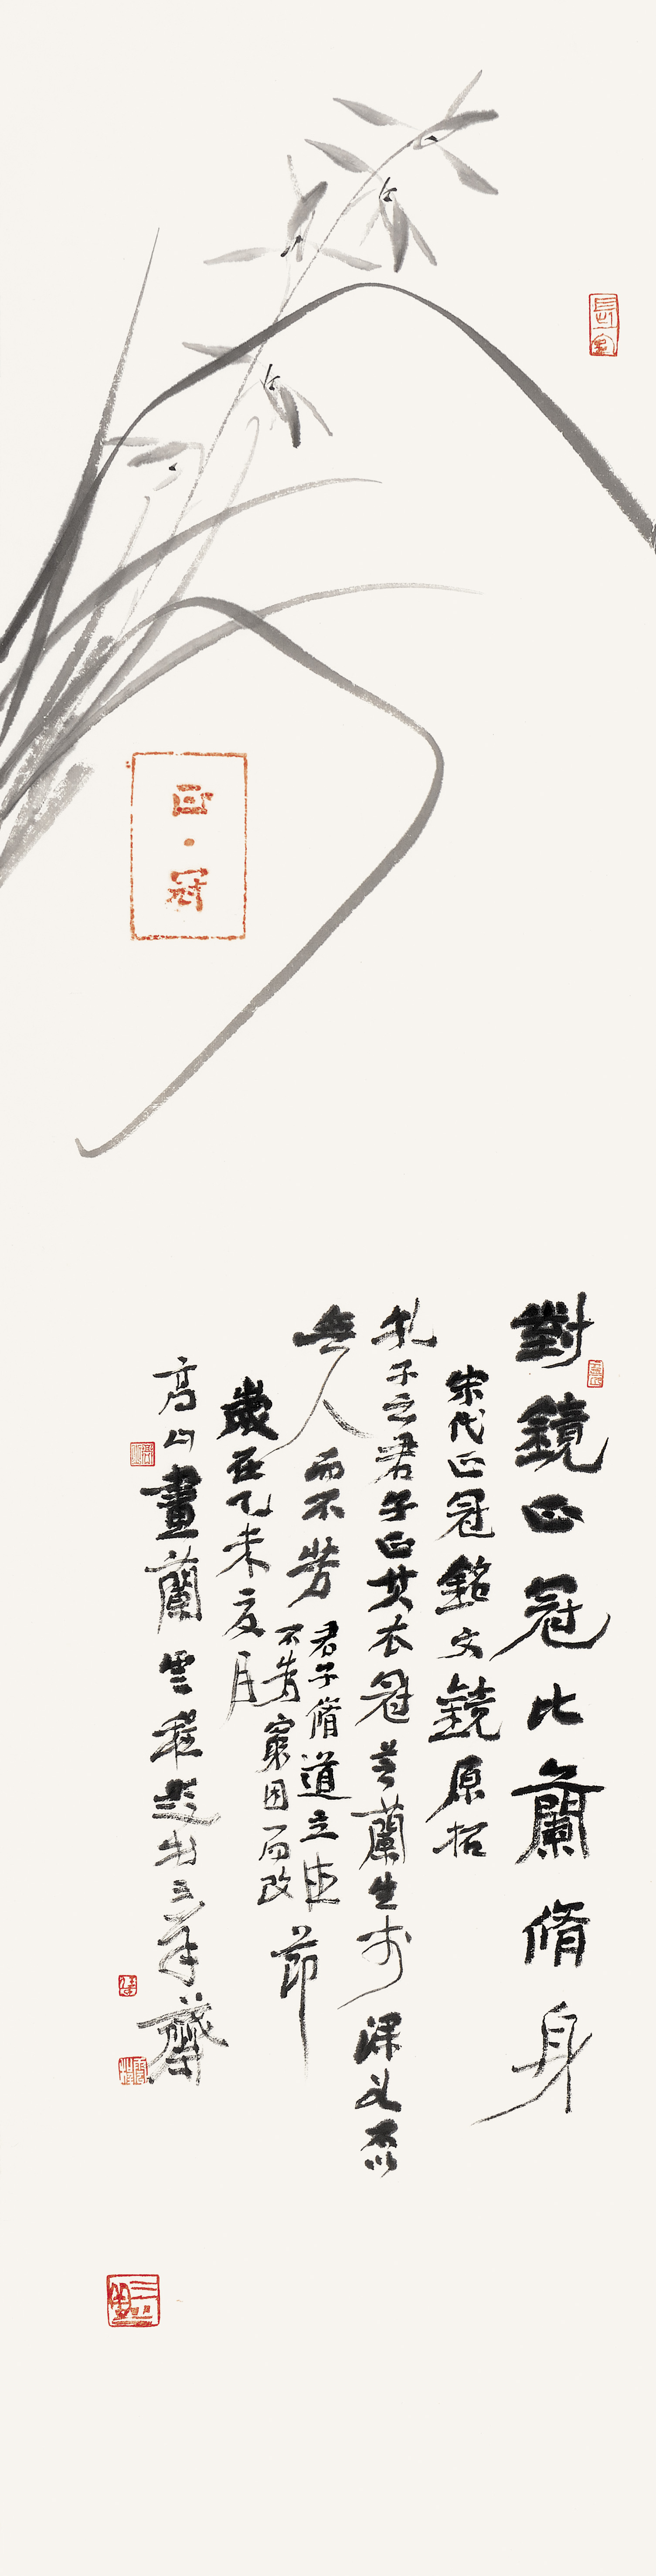 正·冠
對鏡正冠比蘭脩身
宋代正冠銘文鏡原拓
孔子云君子正其衣冠芝蘭生於深不以
無人而不芳君子脩道立德
不為窮困而改節
歲在乙未夏月
高山畫蘭雲程題三齋